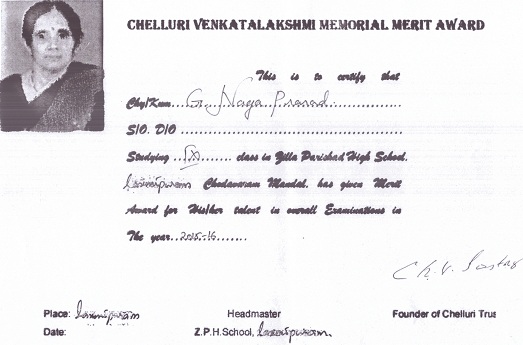 CHELLURI VENKATALAKSHMI MEMORIAL MERIT AWARD
This is to certify that
Chy/Kum...G. Naga Prasad...............
S/O. D/O ..........................................................
Studying ...IX........ class in Zilla Parishad High School,
Chodavaram Mandal, has given Merit
Award for His/her talent in overall Examinations in
The year..2015-16.......
Ch.V. Sastry
Place:
Headmaster
Founder of Chelluri Trus
Date:
Z.P.H.School,